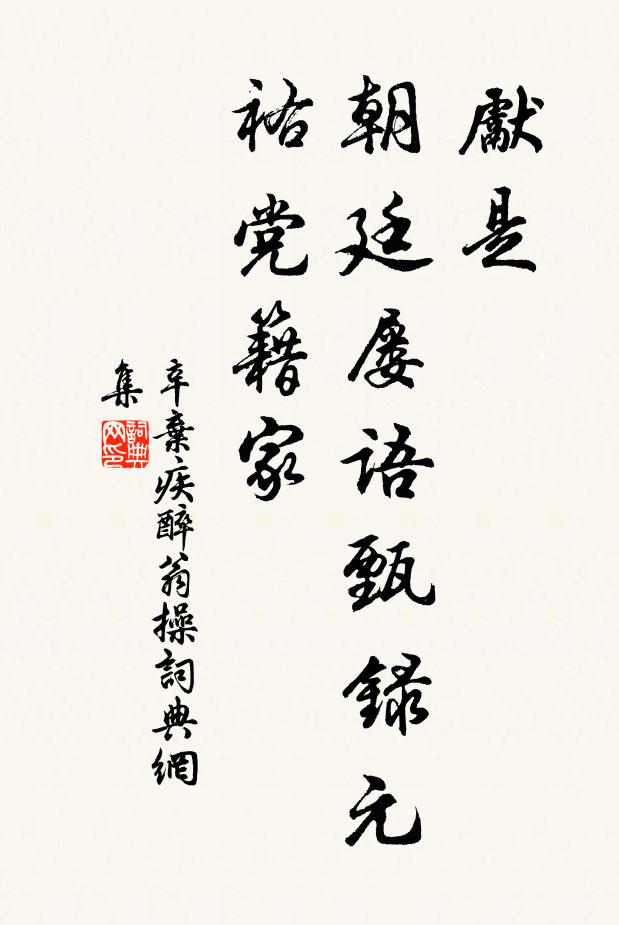 獻是
朝廷屡語甄録元
祐党籍家
辛棄疾醉翁操詞典網
集
詞典
网印